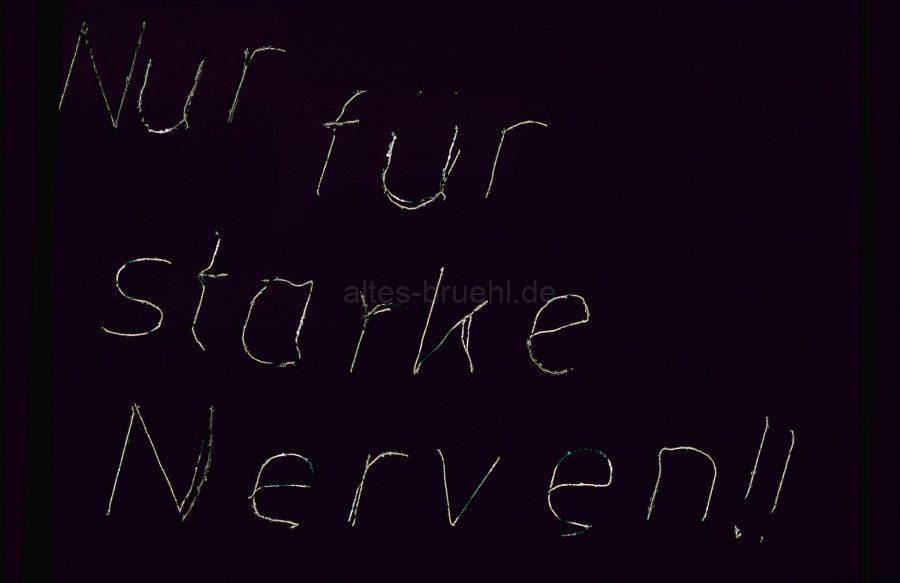 Nur
für
starke
altes-bruehl.de
Nerven!!